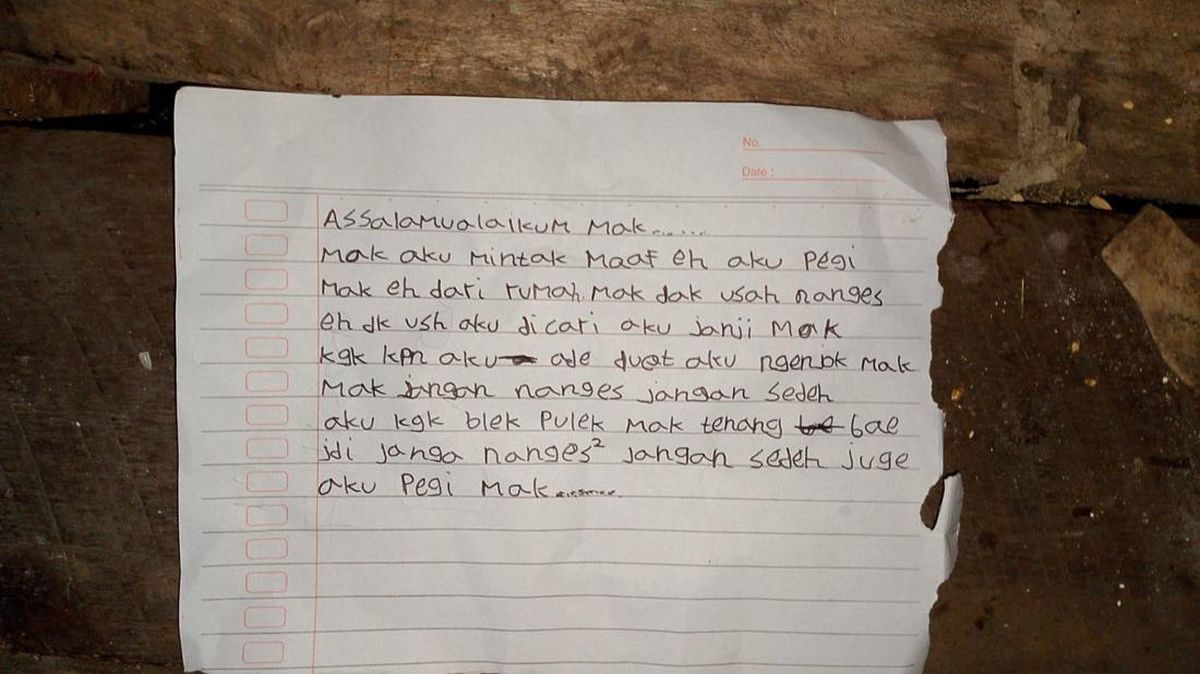 No.
Date :
Assalamualaikum Mak.......
Mak aku mintak maaf eh aku pegi
Mak eh dari rumah. Mak dak usah nanges
eh dk ush aku dicari aku janji Mak
kgk kpn aku ade duet aku ngenok Mak
Mak jangan nanges jangan sedeh
aku kgk blek pulek Mak tenang bae
jdi janga nanges² jangan sedeh juge
aku pegi Mak.........